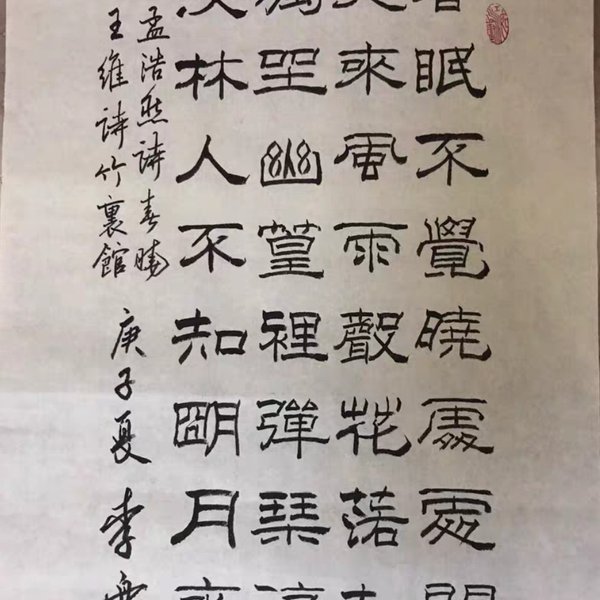 眠不覺曉處處
來風雨聲花落
獨坐幽篁裡彈琴
林人不知明月
孟浩然诗春曉
王維诗竹裏館 庚子夏 李